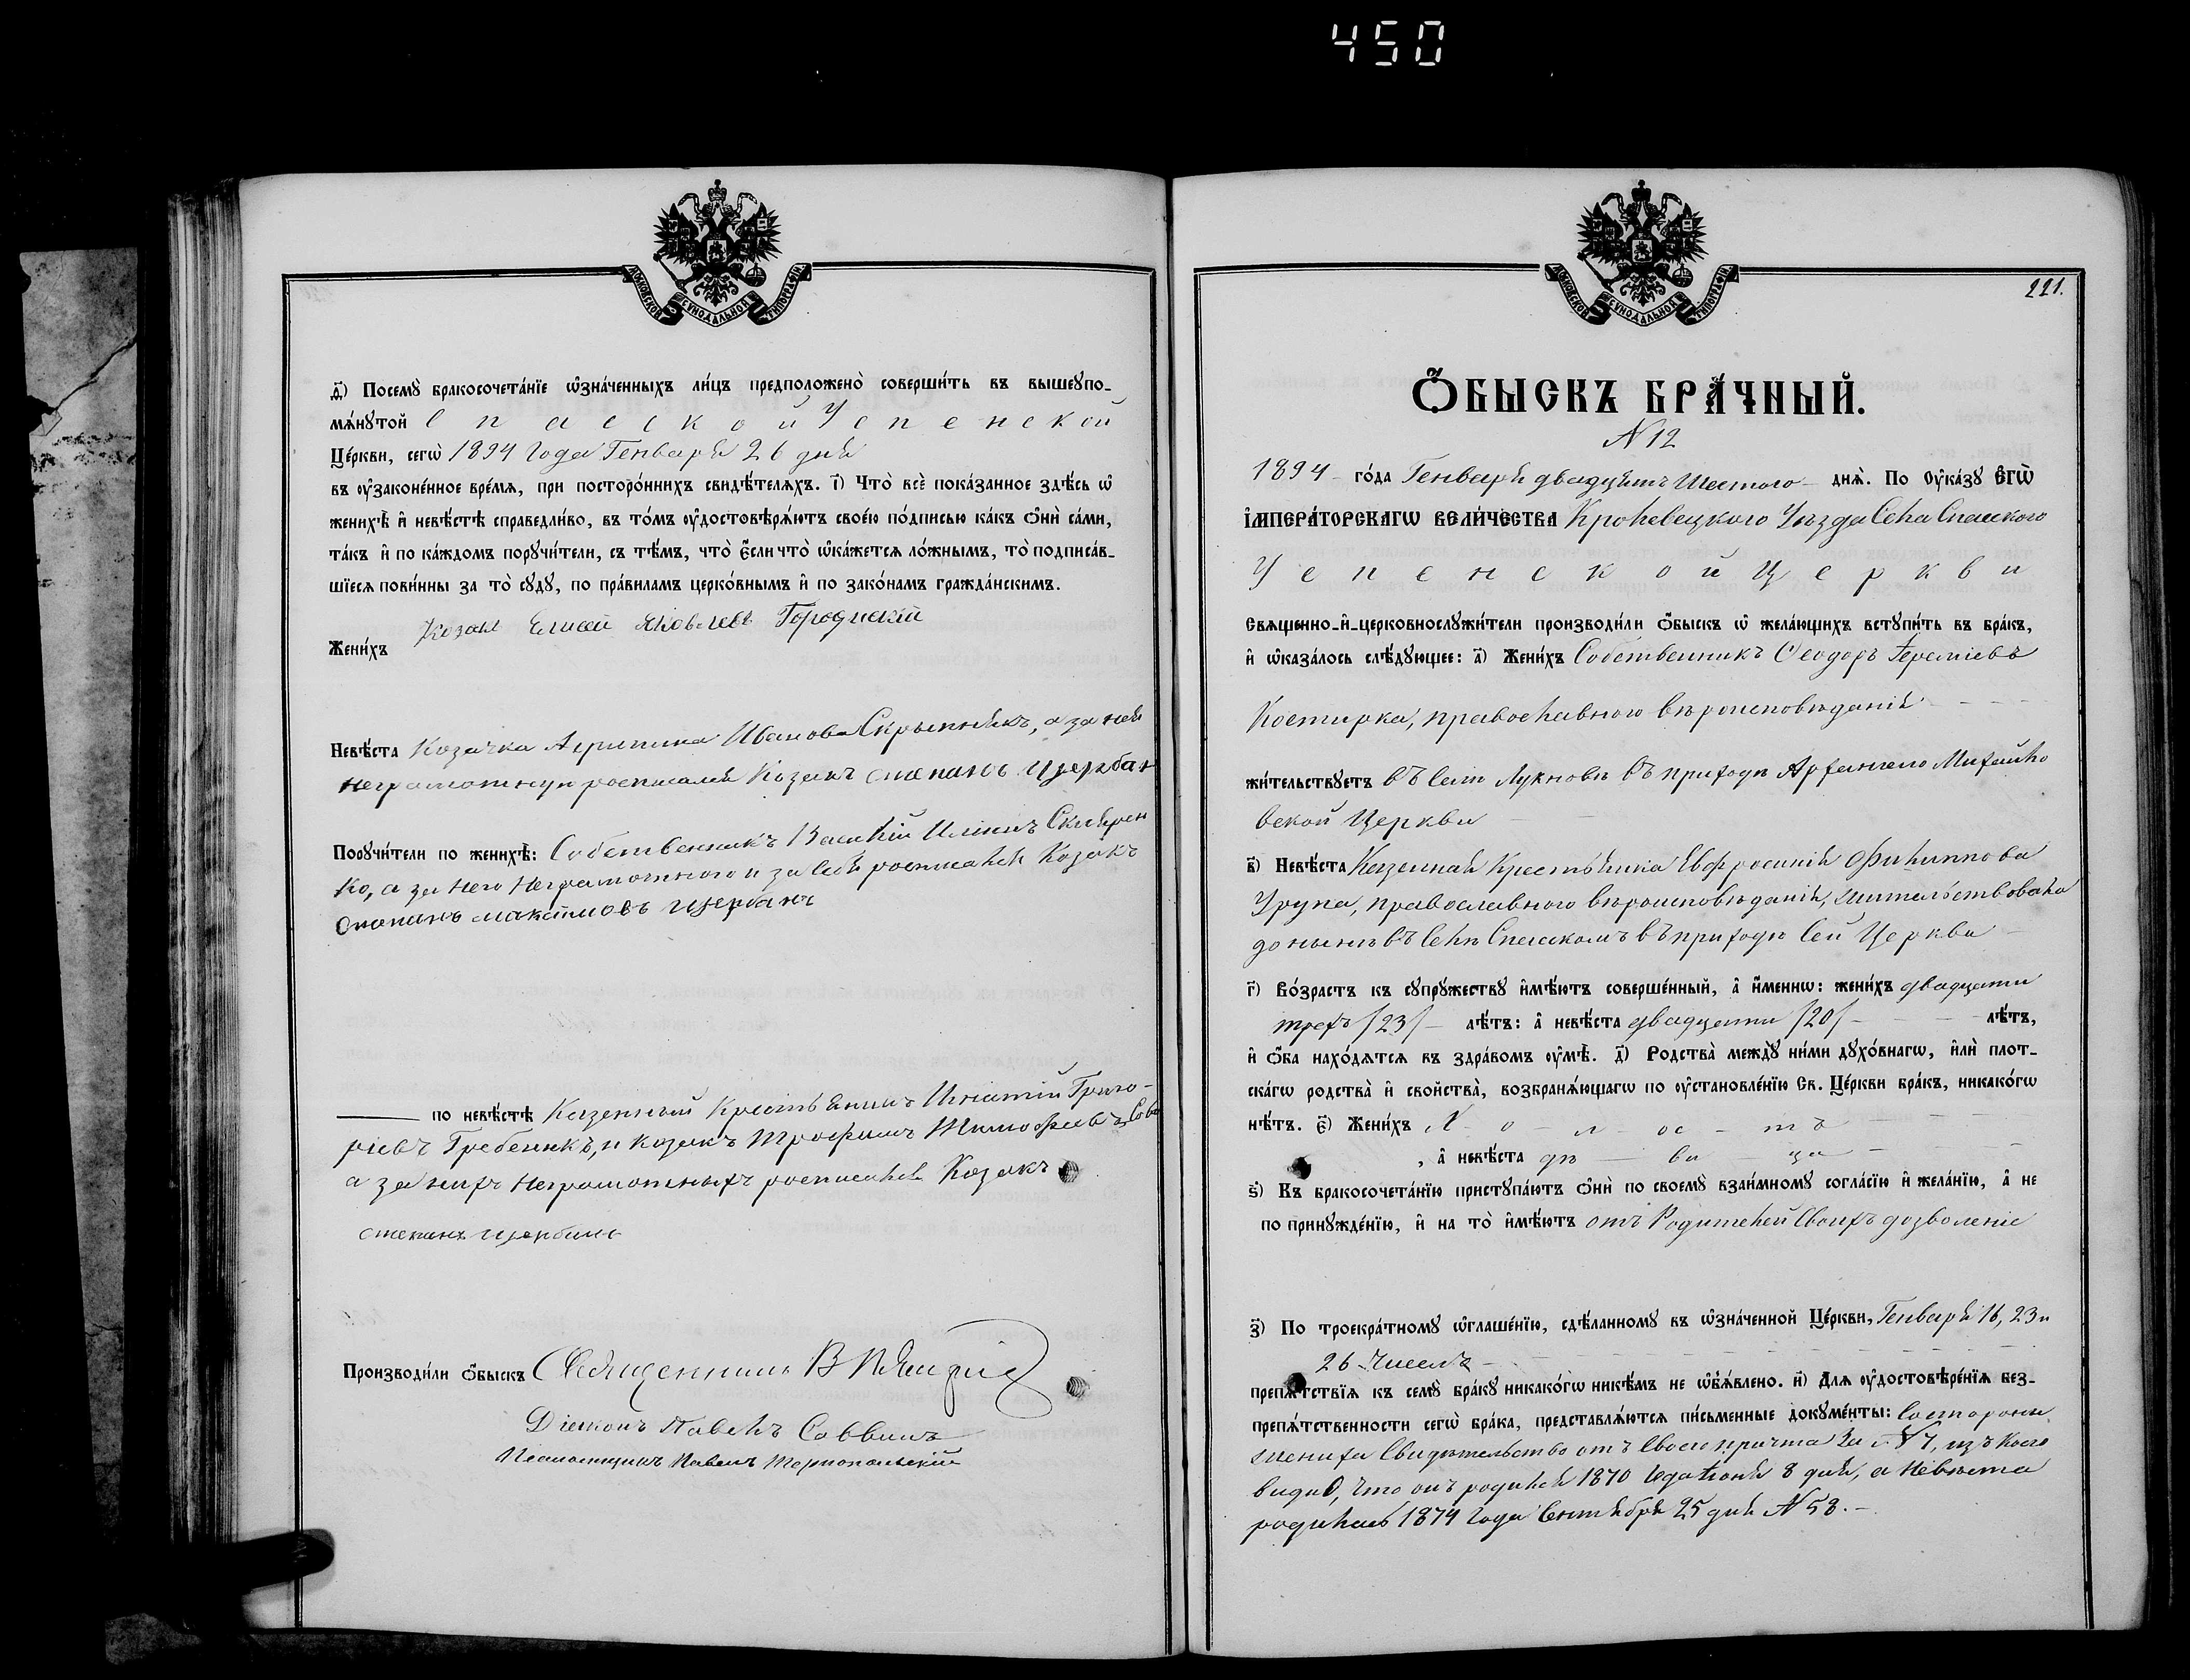 450
МОСКОВСКОЙ СѴНОДАЛЬНОЙ ТИПОГРАФІИ
д҃) Посемꙋ̀ бракосочета́нїе ѡ҆зна́ченныхъ ли́цъ предположено̀ соверши́ть въ вышеꙋпо-
мѧ́нꙋтой Спасской Успенской
Це́ркви, сегѡ̀ 1894 Года Генваря 26 дня
въ ᲂу҆законе́нное вре́мѧ, при посторо́ннихъ свидѣ́телѧхъ. і҃) Что̀ всѐ пока́занное здѣ́сь ѡ҆
женихѣ̀ и҆ невѣ́стѣ справедли́во, въ то́мъ ᲂу҆достовѣрѧ́ютъ свое́ю по́дписью ка́къ ѻ҆нѝ са́ми,
та́къ и҆ по ка́ждомъ порꙋчи́тели, съ тѣ́мъ, что̀ є҆́сли что̀ ѡ҆ка́жетсѧ ло́жнымъ, то̀ подписа́в-
шїесѧ пови́нны за то̀ сꙋдꙋ̀, по пра́виламъ церко́внымъ и҆ по зако́намъ гражда́нскимъ.
Жени́хъ Козакъ Елисей Яковлевъ Городнскій
Невѣ́ста Козачка Агрипина Иванова Скрыпникъ, а за ней
неграмотную росписался Козакъ Степанъ Щербан
Порꙋчи́тели по женихѣ̀: Собственникъ Василій Илiинъ Скляren
ко, а за него неграмотного и за себя росписался Козакъ
Степанъ Максимовъ Щербанъ
по невѣ́стѣ Казенный Крестьянинъ Игнатій Григо-
ріевъ Гребеникъ, и козакъ Трофимъ Тимофѣевъ
а за нихъ неграмотныхъ росписался Козакъ
Степанъ Щербанъ
Производи́ли ѻ҆́быскъ Священникъ В
Діаконъ Павелъ Саввинъ
Псаломщикъ Павелъ Тарнопольскій
МОСКОВСКОЙ СѴНОДАЛЬНОЙ ТИПОГРАФІИ
221.
Ѻ҆́БЫСКЪ БРА́ЧНЫЙ.
N 12
1894 го́да Генваря двадцять шестого днѧ̀. По ᲂу҆ка́зꙋ Є҆гѡ̀
І҆мпера́торскагѡ Вели́чества Кролевецкого Уѣзда Села Спасского
Успенской Церкви
Свѧще́нно-и҆-церковнослꙋжи́тели производи́ли ѻ҆́быскъ ѡ҆ жела́ющихъ встꙋпи́ть въ бра́къ,
и҆ ѡ҆каза́лось слѣ́дꙋющее: а҃) Жени́хъ Собственникъ Ѳеодоръ Іереміевъ
Костирка, православного вѣроисповѣданія
жи́тельствꙋетъ въ селѣ Лукновѣ въ приходѣ Архангело Михайло
вской Церкви
в҃) Невѣ́ста Казенная Крестьянка Евфросинія Филиппова
Урупа, православного вѣроисповѣданія, жительствовала
до нынѣ въ Селѣ Спасскомъ въ приходѣ сей Церкви
г҃) Во́зрастъ къ сꙋпрꙋ́жествꙋ и҆мѣ́ютъ соверше́нный, а҆ и҆́меннѡ: жени́хъ двадцати
трехъ /23/ лѣ́тъ: а҆ невѣ́ста двадцати /20/ лѣ́тъ,
и҆ ѻ҆́ба нахо́дѧтсѧ въ здра́вомъ ᲂу҆мѣ̀. д҃) Родства̀ междꙋ̀ ни́ми дꙋхо́внагѡ, и҆лѝ плот-
ска́гѡ родства̀ и҆ свойства̀, возбранѧ́ющагѡ по ᲂу҆становле́нїю Св. Це́ркви бра́къ, никако́гѡ
нѣ́тъ. є҃) Жени́хъ Холостъ
, а҆ невѣ́ста дѣвица
ѕ҃) Къ бракосочета́нїю пристꙋпа́ютъ ѻ҆нѝ по своемꙋ̀ взаи́мномꙋ согла́сїю и҆ жела́нїю, а҆ не
по принꙋжде́нїю, и҆ на то̀ и҆мѣ́ютъ отъ Родителей своихъ дозволеніе
з҃) По троекра́тномꙋ ѡ҆глаше́нїю, сдѣ́ланномꙋ въ ѡ҆зна́ченной Це́ркви, Генваря 16, 23 и
26 Чиселъ
препѧ́тствїѧ къ семꙋ̀ бра́кꙋ никако́гѡ никѣ́мъ не ѡ҆б̾ѧ́влено. и҃) Длѧ ᲂу҆достовѣре́нїѧ без-
препѧ́тственности сегѡ̀ бра́ка, представлѧ́ютсѧ пи́сьменные докꙋме́нты: Состороны
жениха Свидѣтельство отъ своего причта за № 7, изъ коего
видно, что онъ родился 1870 года Іюня 8 дня, а Невѣста
родилась 1874 Года Сентября 25 дня N 58.